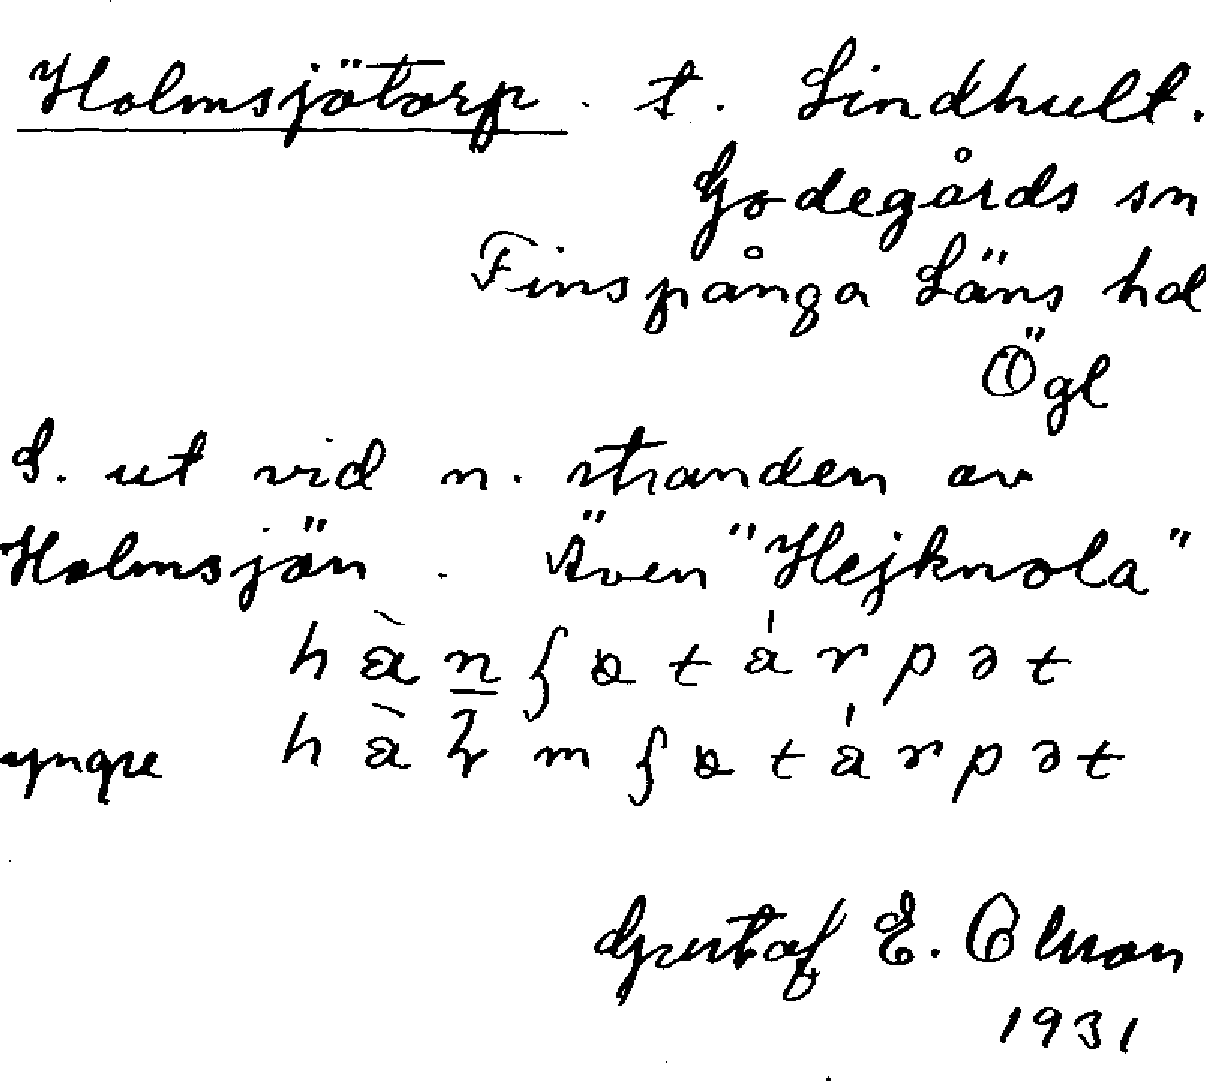 Holmsjötorp . t. Lindhult.
Godegårds sn
Finspånga Läns hd
Ögl
L. ut vid n. stranden av
Holmsjön . Även "Hejknola"
yngre
Gustaf E. Olsson
1931